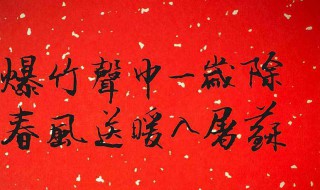 爆竹聲中一歲除
春風送暖入屠蘇